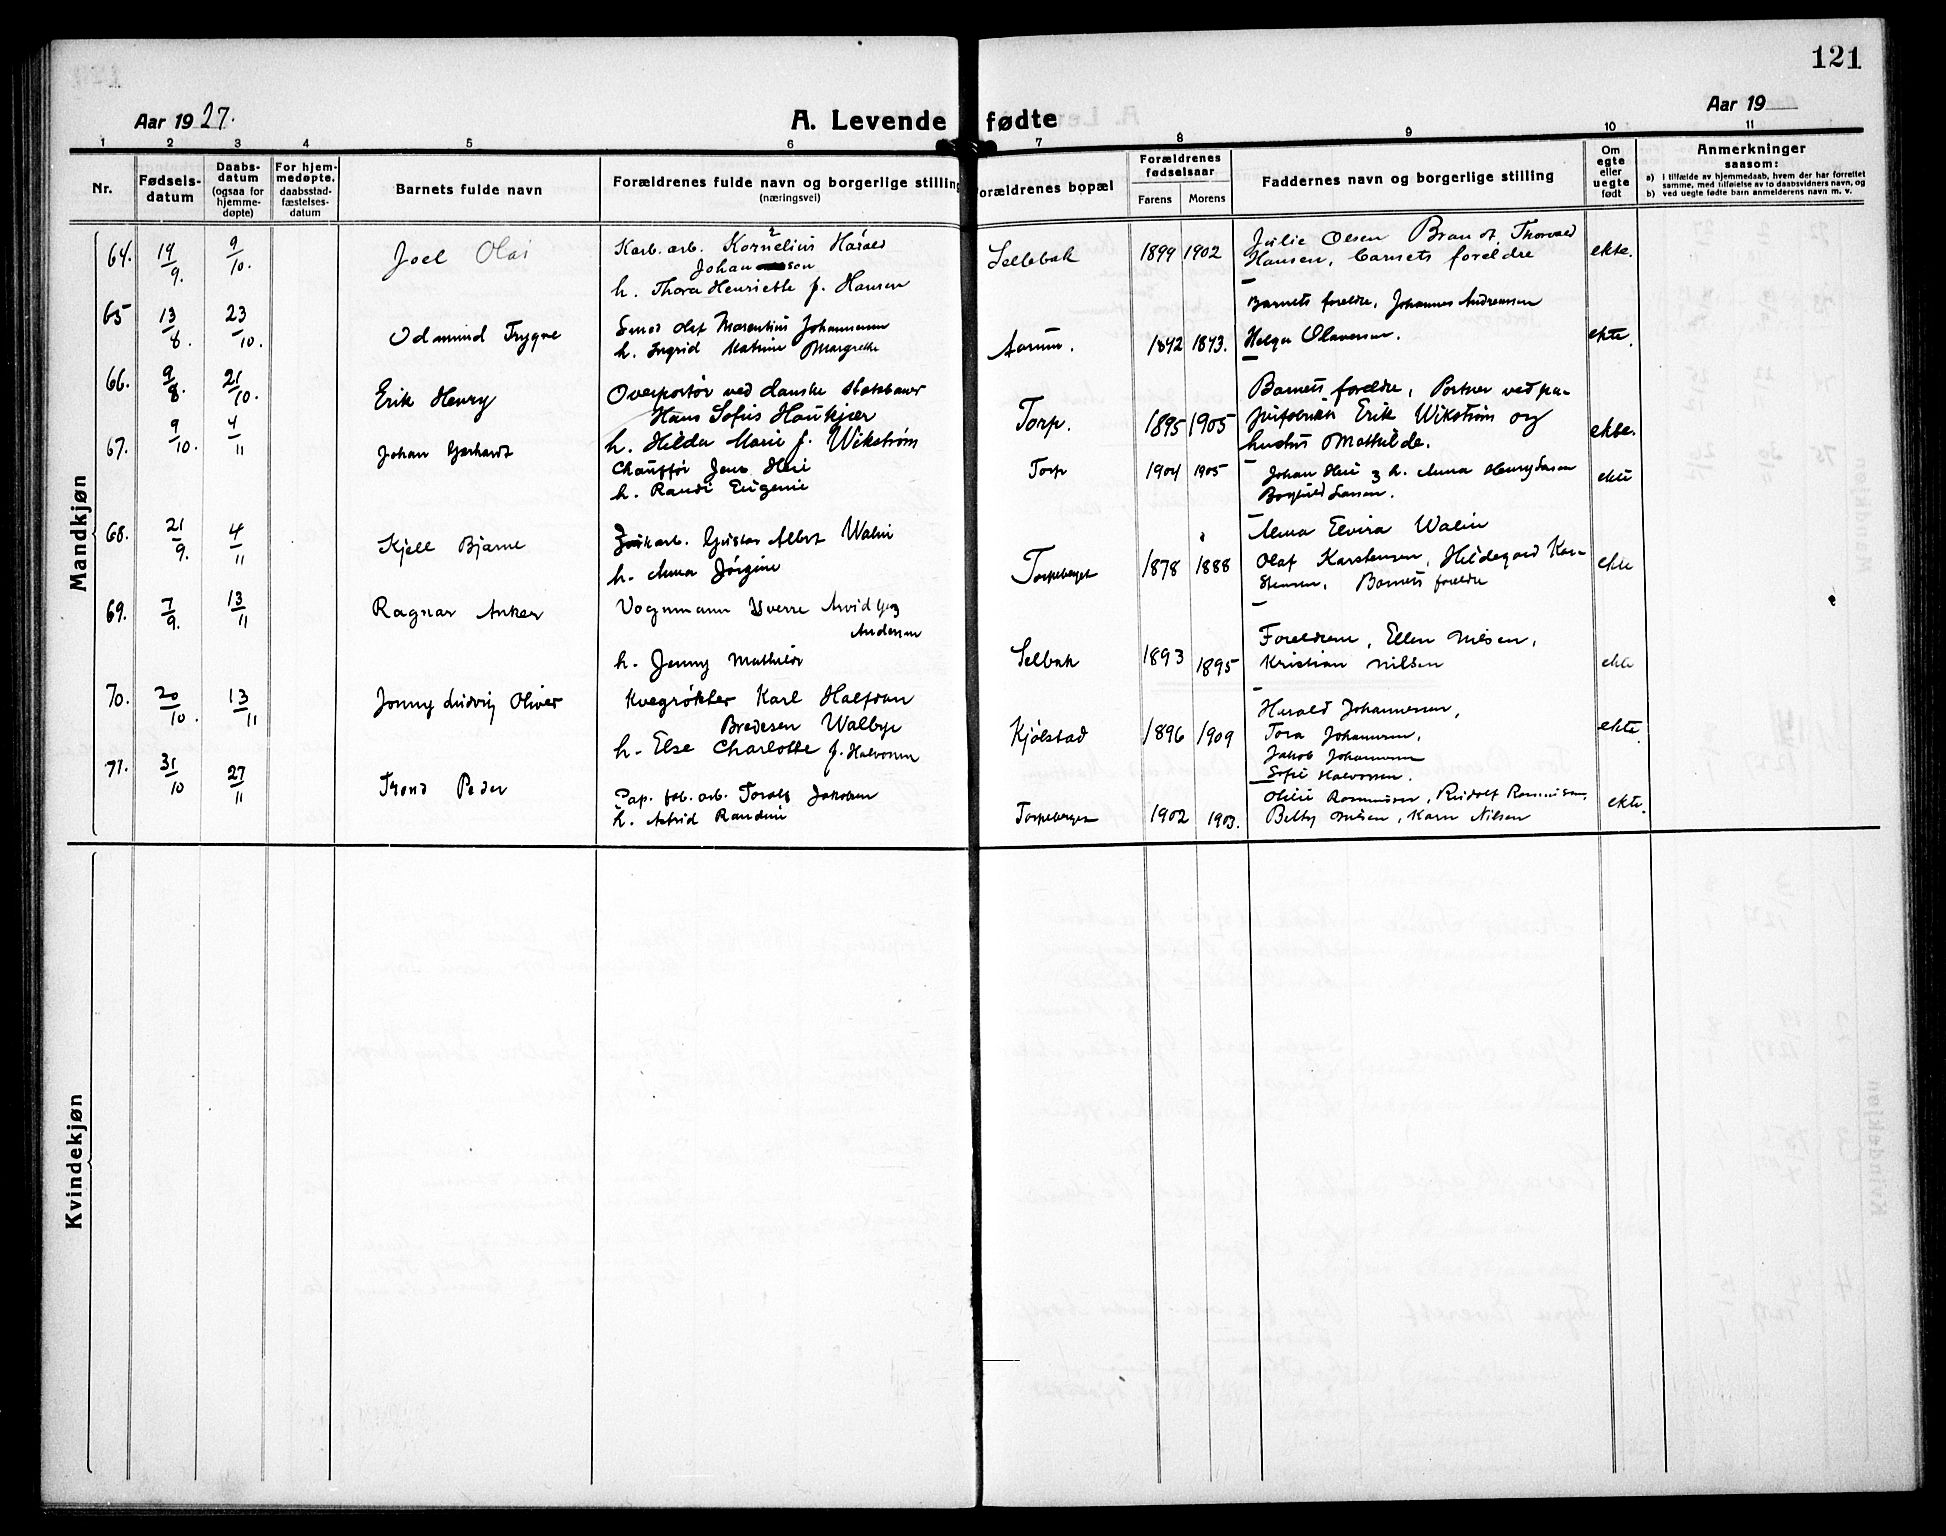 121
Aar 1927.
A. Levende fødte
Aar 19
1 2 3 4 5 6 7 8 9 10 11
Nr.
Fødsels-
datum
Daabs-
datum
(ogsaa for
hjemme-
døpte)
For hjem-
medøpte,
daabsstad-
fæstelses-
datum
Barnets fulde navn
Forældrenes fulde navn og borgerlige stilling
(næringsvei)
Forældrenes bopæl
Forældrenes
fødselsaar
Farens Morens
Faddernes navn og borgerlige stilling
Om
egte
eller
uegte
født
Anmerkninger
saasom:
a) I tilfælde av hjemmedaab, hvem der har forrettet
samme, med tilføielse av to daabsvidners navn, og
b) ved uegte fødte barn anmelderens navn m. v.
Mandkjøn
64. 19/9. 9/10. Joel Olai
Karb. arb. Kornelius Harald
Johanson
h. Thora Henriette f. Hansen
Sellebak 1899 1902
Julie Olsen Brandt, Thorvald
Hansen, barnets foreldre
ekte.
65 13/8. 23/10. Odmund Trygve
Olaf Marentius Johannesen
h. Ingrid Katrine Margrethe
Aarum. 1892 1893.
Barnets foreldre, Johannes Andreassen
Helga Olavesen.
ekte.
66. 9/8. 21/10. Erik Henry
Overportør ved danske statsbaner
Hans Sofus Haukjær
h. Hilda Marie f. Wikstrøm
Torp. 1895 1905
Barnets foreldre, Portner ved pa-
pirfabrikk Erik Wikstrøm og
hustru Mathilde.
ekte.
67. 9/10. 4/11 Johan Gerhardt
Chauffør Jens Heie
h. Randi Eugenie
Torp 1904 1905
Johan Heie & h. Anna Henry Larsen
Borghild Larsen.
ekte
68. 21/9. 4/11 Kjell Bjarne
Gustav Albert Walin
h. Anna Jørgine
Torpeberget 1878 1888
Alma Elvira Walin
Olaf Karstensen, Hildegard Kar-
stensen, Barnets foreldre
ekte
69. 7/9. 13/11 Ragnar Anker
Vognmann Sverre Arvid Georg
Andersen
h. Jenny Mathilde
Selbak 1893 1895
Foreldrene, Ellen Nilsen,
Kristian Nilsen
ekte
70. 20/10. 13/11 Jonny Ludvig Oliver
Kvegrøkter Karl Halfdan
Bredesen Walbye
h. Else Charlotte f. Halvorsen
Kjølstad 1896 1909
Harald Johannessen,
Tora Johannesen,
Jakob Johannesen
Sofie Halvorsen.
ekte.
71. 31/10 27/11 Trond Peder
Pap. fab. arb. Toralf Jakobsen
h. Astrid Randine
Torpeberget 1902 1903.
Olise Rasmussen, Rudolf Rasmussen,
Betty Nilsen, Karn Nilsen
ekte.
Kvindekjøn